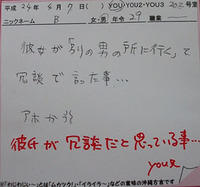 平成24年4月7日( ) YOU・YOU2・YOU3 202号室
ニックネーム B 女・男 年令29 職業
彼女が「別の男の所に行く」て
冗談で言った事…
アホかう?
彼氏が冗談だと思っている事…
youえ
"わじわじ~"とは「ムカツク!・イライラ~」などの意味の沖縄方言です